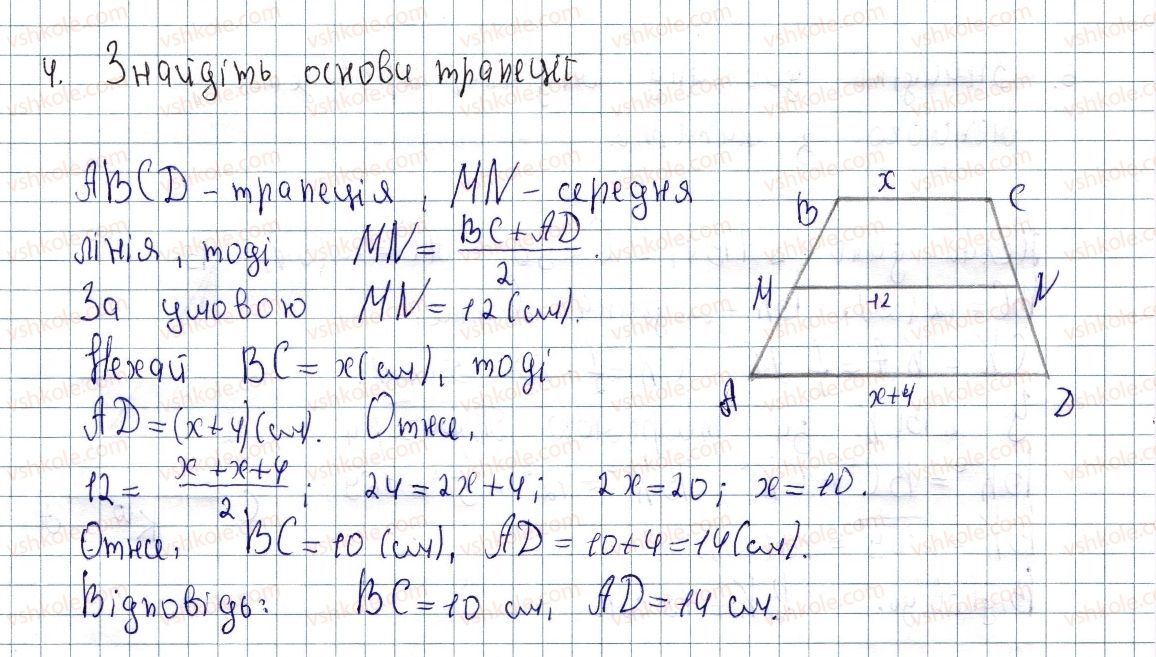 4. Знайдіть основи трапеції
ABCD - трапеція, MN - середня
лінія, тоді MN = (BC + AD)/2.
За умовою MN = 12 (см).
Нехай BC = x (см), тоді
AD = (x+4) (см). Отже,
12 = (x+x+4)/2; 24 = 2x+4; 2x = 20; x = 10.
Отже, BC = 10 (см), AD = 10+4 = 14 (см).
Відповідь: BC = 10 см, AD = 14 см.
x
B C
M 12 N
A x+4 D
vshkole.com